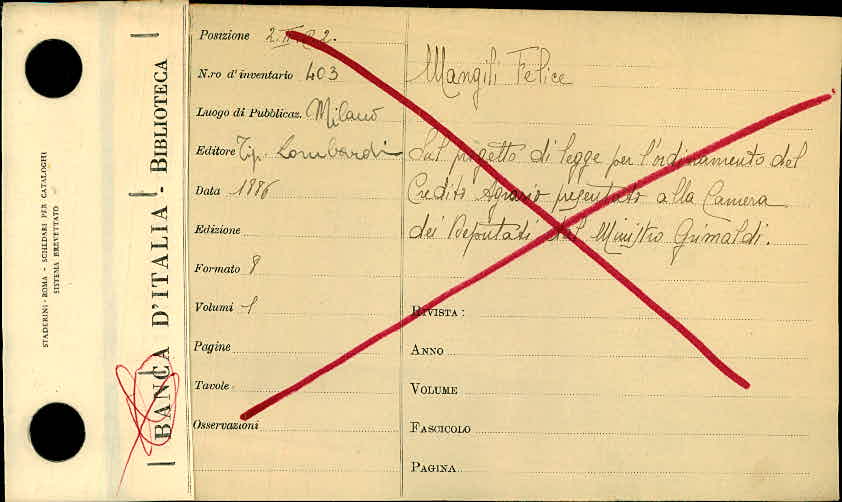 STADERINI - ROMA - SCHEDARI PER CATALOGHI
SISTEMA BREVETTATO
BANCA D'ITALIA - BIBLIOTECA
Posizione 2.
N.ro d'inventario 403
Luogo di Pubblicaz. Milano
Editore Tip. Lombardi
Data 1886
Edizione
Formato 8
Volumi 1
Pagine
Tavole
Osservazioni
Mangili Felice
Sul progetto di legge per l'ordinamento del
Credito Agrario presentato alla Camera
dei Deputati dal Ministro Grimaldi.
RIVISTA :
ANNO
VOLUME
FASCICOLO
PAGINA